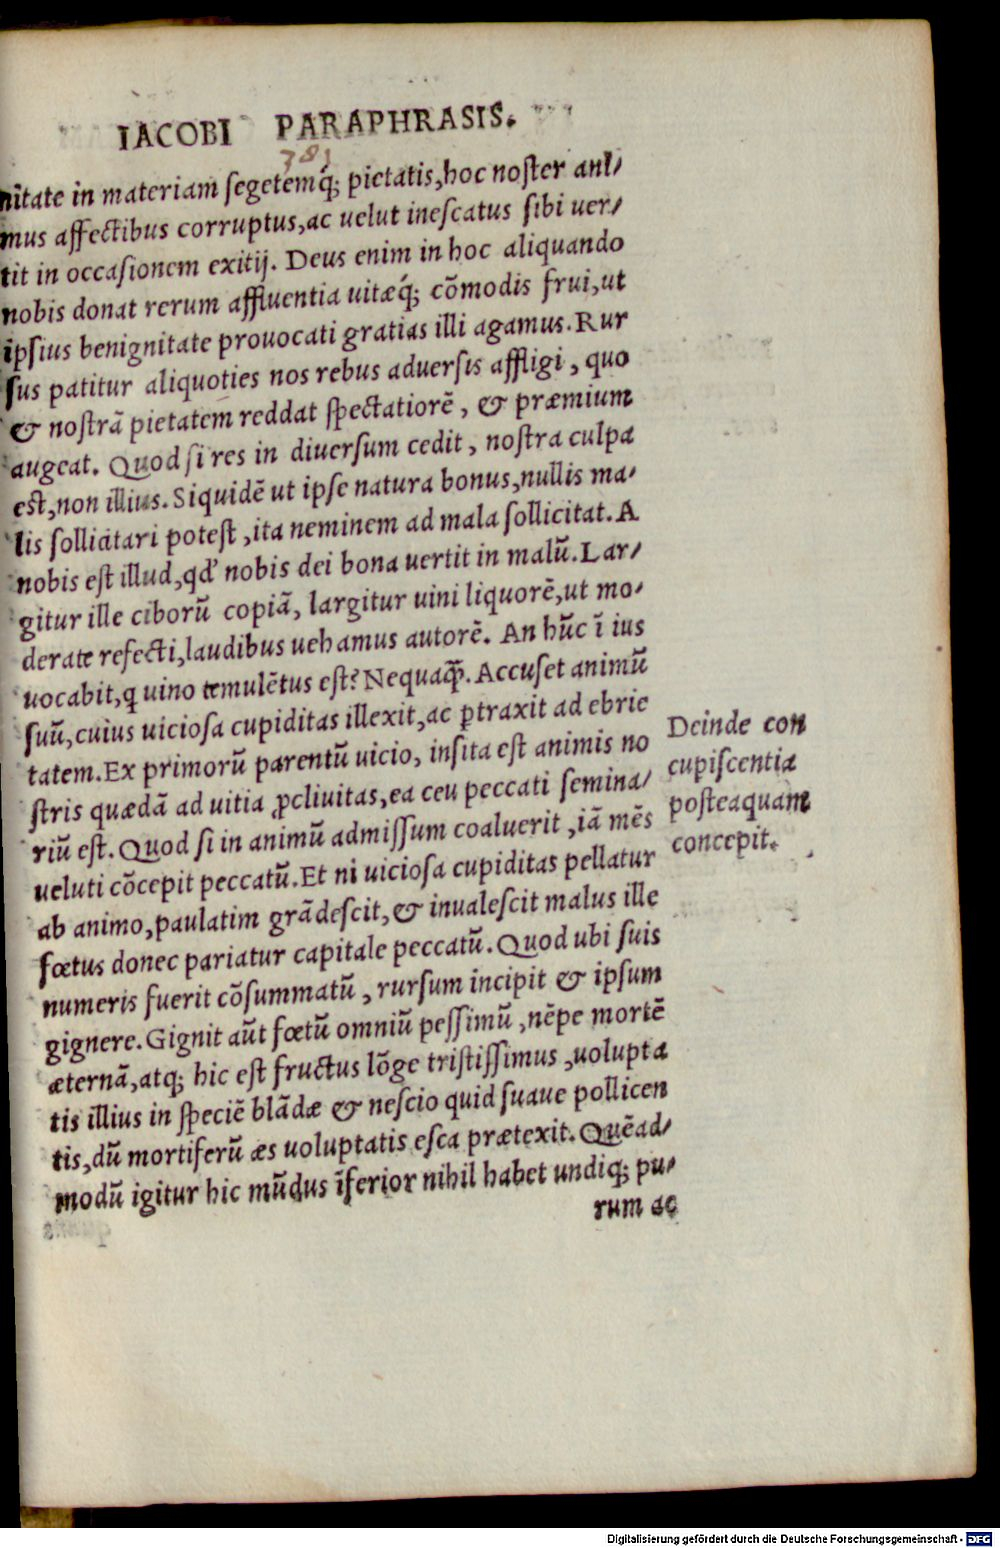 IACOBI PARAPHRASIS.
781
nitate in materiam segetemq́; pietatis, hoc noster ani/
mus affectibus corruptus, ac uelut inescatus sibi uer/
tit in occasionem exitij. Deus enim in hoc aliquando
nobis donat rerum affluentia uitæq́; cõmodis frui, ut
ipsius benignitate prouocati gratias illi agamus. Rur
sus patitur aliquoties nos rebus aduersis affligi, quo
& nostrã pietatem reddat spectatiorẽ, & præmium
augeat. Quod si res in diuersum cedit, nostra culpa
est, non illius. Siquidẽ ut ipse natura bonus, nullis ma/
lis sollicitari potest, ita neminem ad mala sollicitat. A
nobis est illud, qď nobis dei bona uertit in malũ. Lar/
gitur ille ciborũ copiã, largitur uini liquorẽ, ut mo/
derate refecti, laudibus uehamus autorẽ. An hũc ĩ ius
uocabit, q uino temulẽtus est? Nequaꝙ̃. Accuset animũ
suũ, cuius uiciosa cupiditas illexit, ac ꝑtraxit ad ebrie
tatem. Ex primorũ parentũ uicio, insita est animis no
stris quædã ad uitia ꝓcliuitas, ea ceu peccati semina/
riũ est. Quod si in animũ admissum coaluerit, iã mẽs
ueluti cõcepit peccatũ. Et ni uiciosa cupiditas pellatur
ab animo, paulatim grãdescit, & inualescit malus ille
fœtus donec pariatur capitale peccatũ. Quod ubi suis
numeris fuerit cõsummatũ, rursum incipit & ipsum
gignere. Gignit aũt fœtũ omniũ pessimũ, nẽpe mortẽ
æternã, atq; hic est fructus lõge tristissimus, uolupta
tis illius in speciẽ blãdæ & nescio quid suaue pollicen
tis, dũ mortiferũ æs uoluptatis esca prætexit. Quẽad/
modũ igitur hic mũdus ĩferior nihil habet undiq; pu/
rum ac
Deinde con
cupiscentia
posteaquam
concepit.
Digitalisierung gefördert durch die Deutsche Forschungsgemeinschaft - DFG